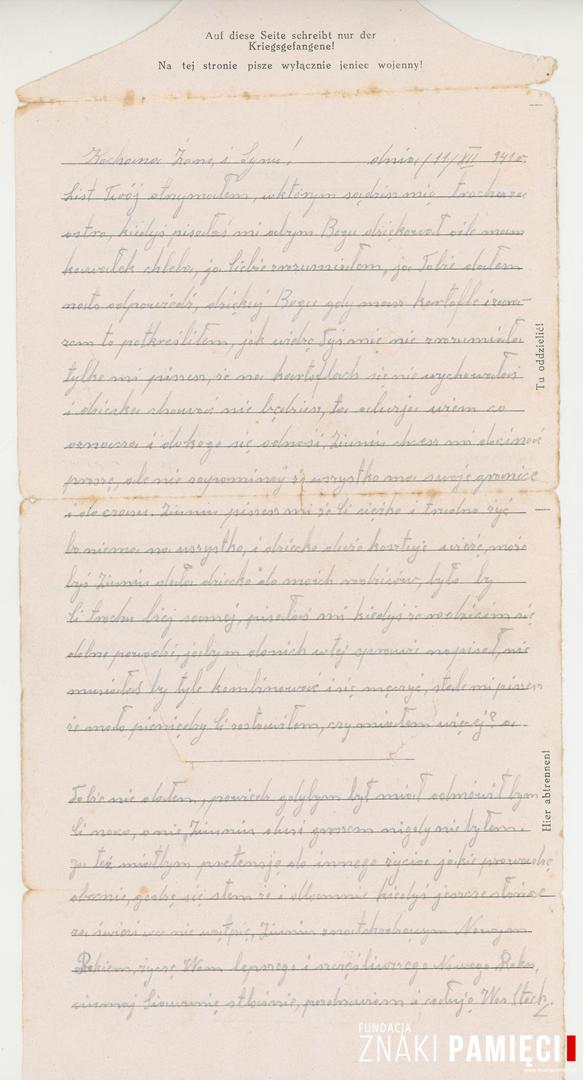 Auf diese Seite schreibt nur der
Kriegsgefangene!
Na tej stronie pisze wyłącznie jeniec wojenny!
Kochana Żono, i Synu! dnia, 11/XII 941 r.
List Twój otrzymałem, w którym sądzisz mię trochę za
ostro, kiedyś pisałaś mi abym Bogu dziękował o ile mam
kawałek chleba, ja Ciebie zrozumiałem, ja Tobie dałem
na to odpowiedź, dziękuj Bogu gdy masz kartofle i zara-
zem to potkreśliłem, jak widzę Tyś mie nie zrozumiała
tylko mi piszesz, że na kartoflach się nie wychowałaś
i dziecka chować nie będziesz, ta aluzja wiem co
oznacza i do kogo się odnosi, Ziuniu chcesz mi docinać
proszę, ale nie zapominaj że wszystko ma swoje granice
i do czasu. Ziuniu piszesz mi że Ci ciężko i trudno żyć
bo niema na wszystko, i dziecko dużo kosztuje wierzę, może
byś Ziuniu dała dziecko do moich rodziców, było by
Ci trochu lżej samej, pisałaś mi kiedyś że rodzicom się
dobrze powodzi, jabym do nich w tej sprawie napisał, nie
musiałaś by tyle kombinować i się męczyć, stale mi piszesz
że mało pieniędzy Ci zostawiłem, czy miałem więcej? a
Tobie nie dałem, powiedz gdybym był miał odmówił bym
Ci noco, o nie, Ziuniu dusi groszem nigdy nie byłem.
za też miałbym pretensję do innego życia jakie prowadzę
obecnie, godzę się z tem że i dla mnie kiedyś jeszcze słońce
za świeci w co nie wątpię, Ziuniu z nadchodzącym Nowym
Rokiem, życzę Wam lepszego i szczęśliwszego Nowego Roku,
pozdrawiam i całuję Was Stach
Tu oddzielić!
Hier abtrennen!
FUNDACJA
ZNAKI PAMIĘCI